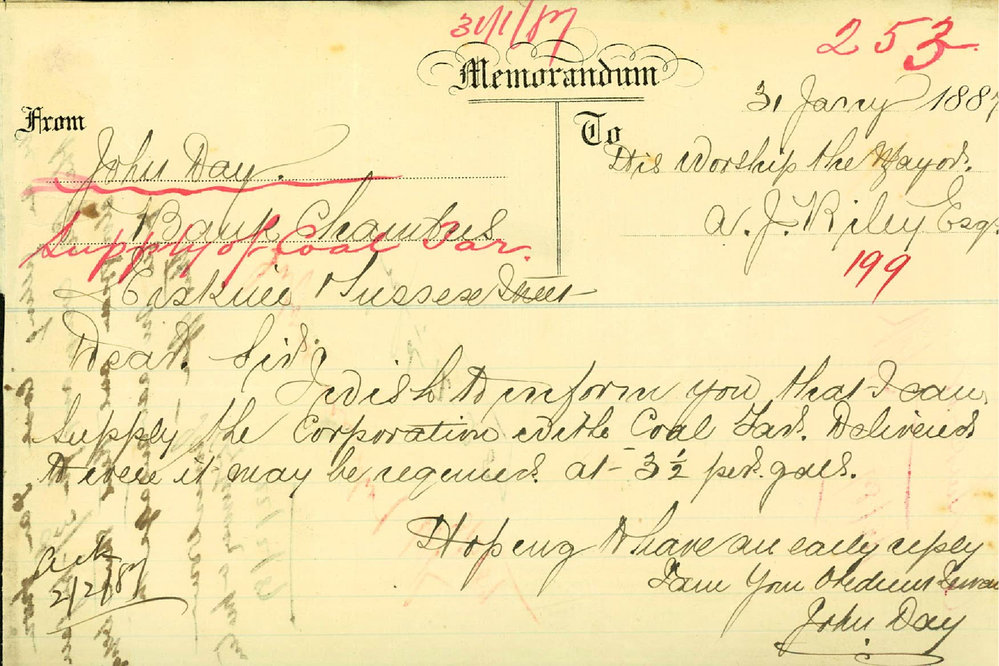 31/1/87
253
Memorandum
31 Jany 1887
From
To
John Day.
His Worship the Mayor.
Bank Chambers
A. J. Riley Esq.
Supply of Coal Tar.
199
Erskine & Sussex Street
Dear Sir
I wish to inform you that I can
supply the Corporation with Coal Tar. Delivered
were it may be required at 3½ per. gall.
Hoping to have an early reply
Ack
2/2/87
I am Your Obedient Servan
John Day